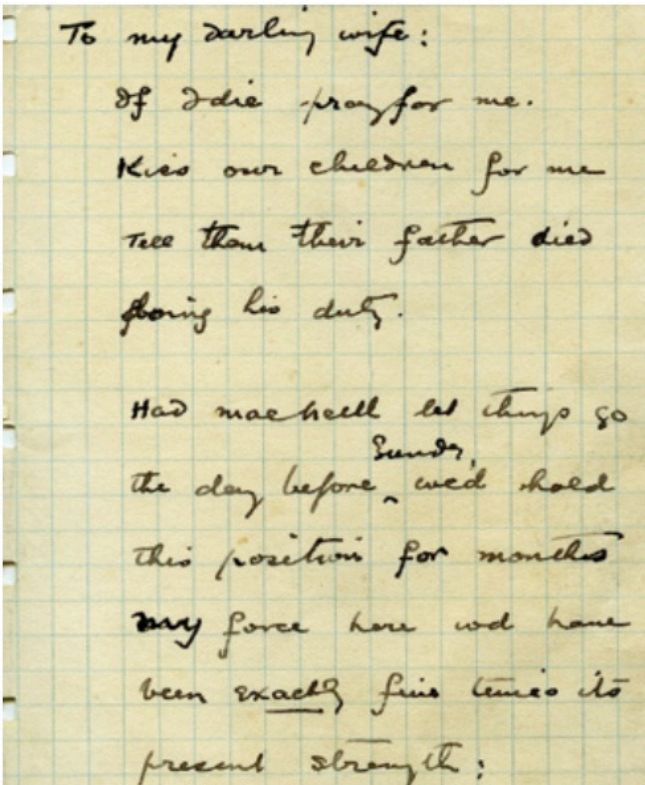 To my darling wife:
If I die pray for me.
Kiss our children for me
Tell them their father died
doing his duty.
Had MacNeill let things go
Sunday,
the day before ‸ we'd hold
this position for months
my force here wd have
been exactly five times its
present strength: